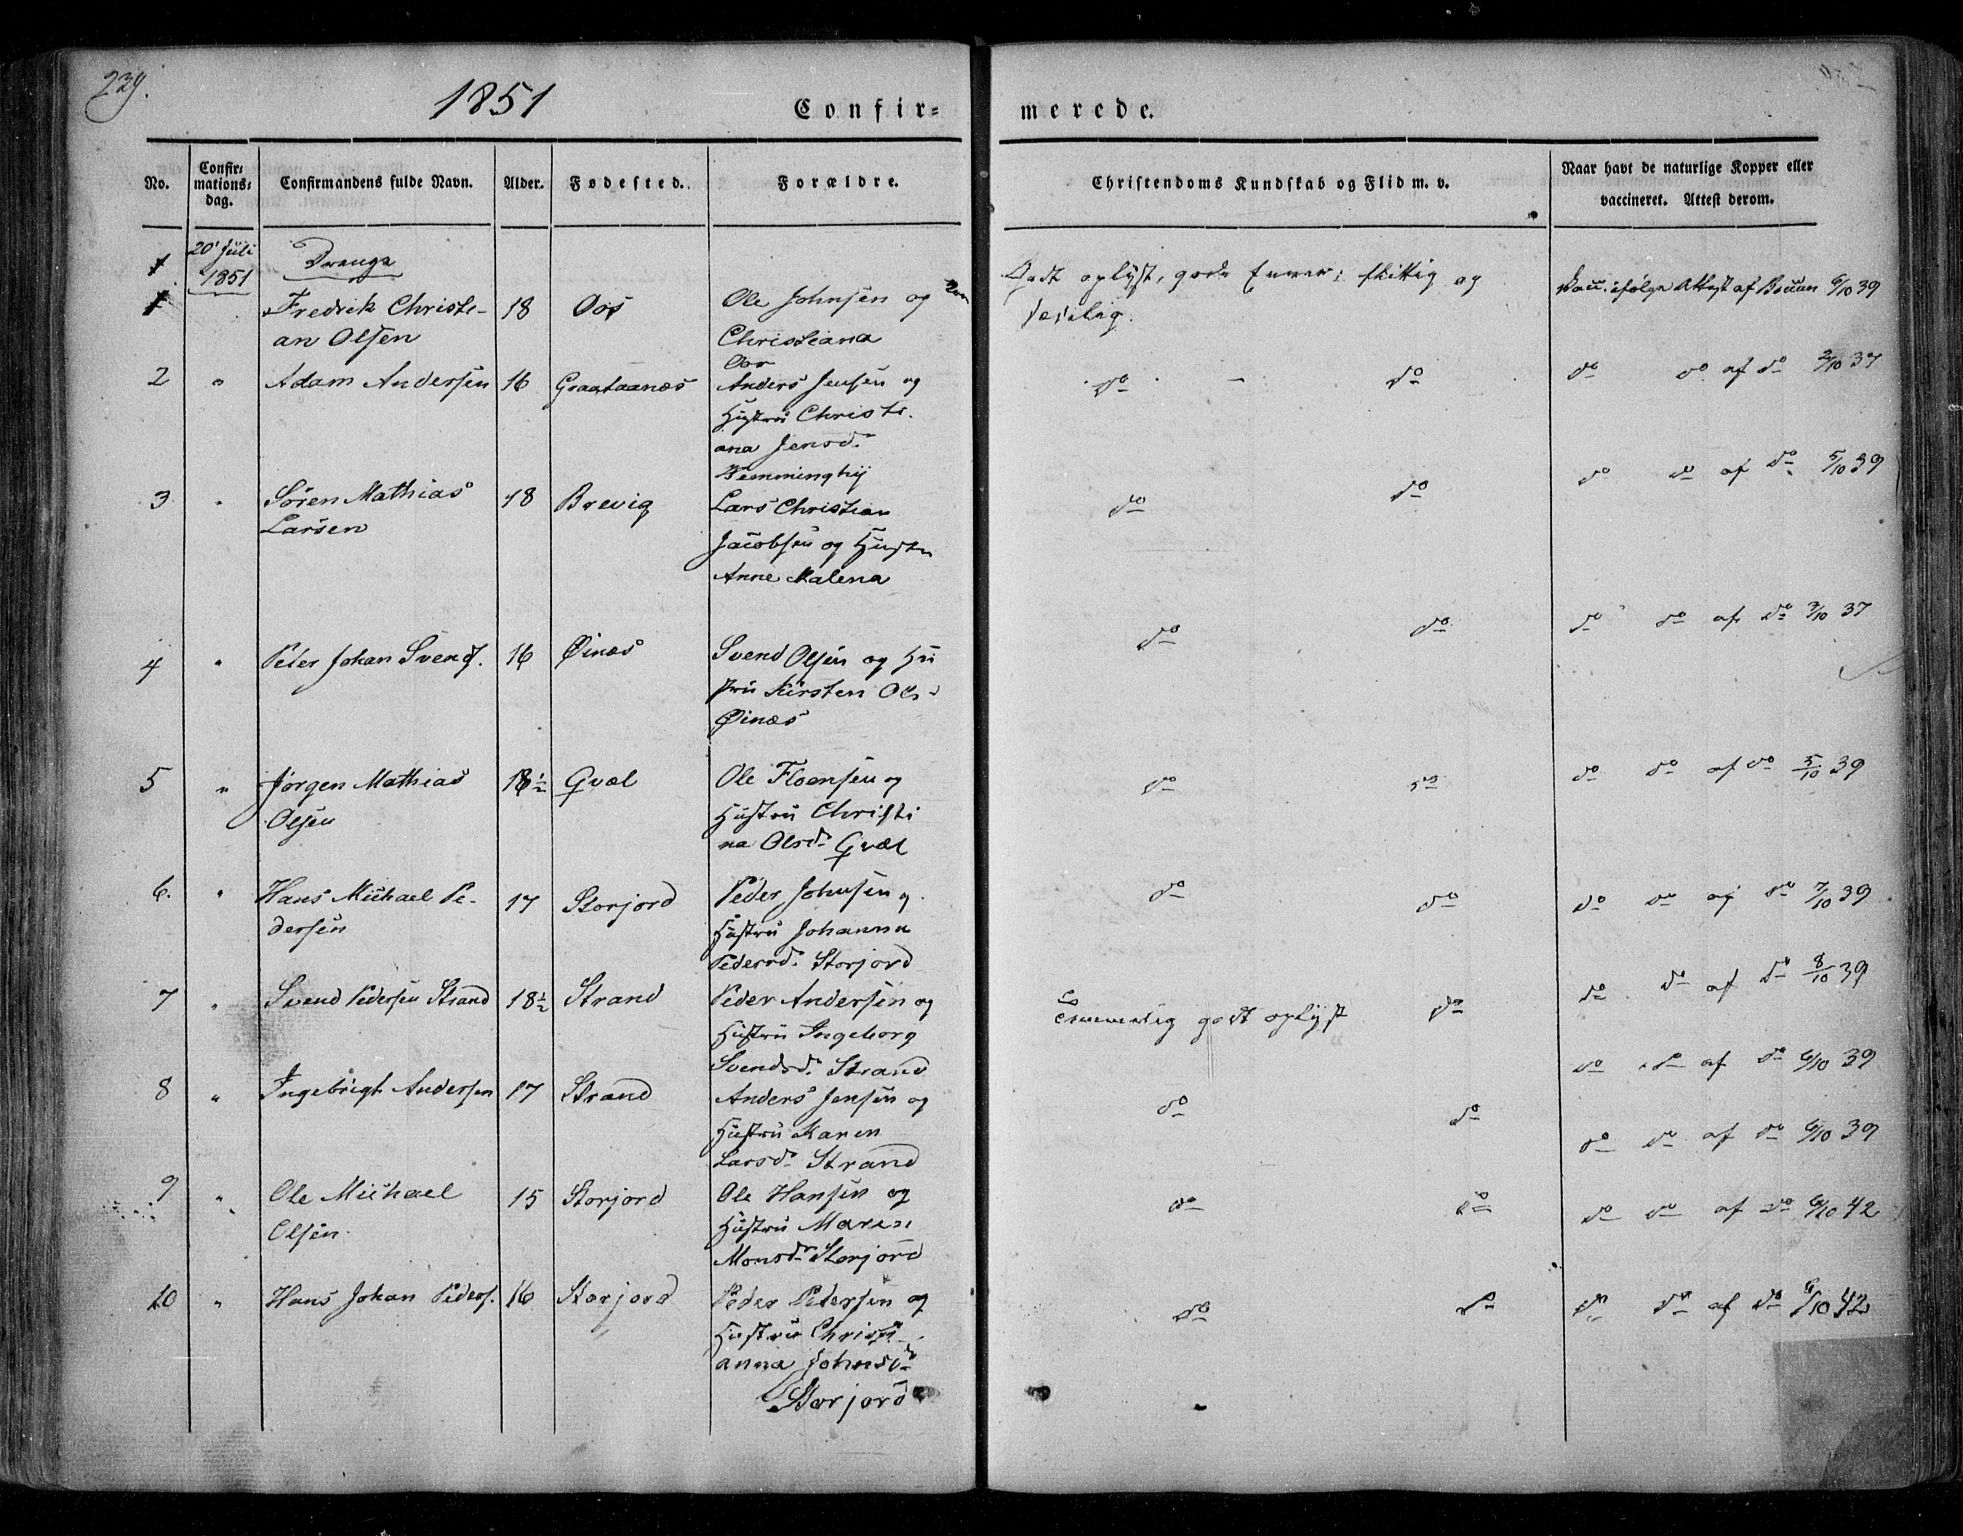 239.
1851
Confir=
merede.
No.
Confir=
mations=
dag.
Confirmandens fulde Navn.
Alder.
Fødested.
Forældre.
Christendoms Kundskab og Flid m. v.
Naar havt de naturlige Kopper eller
vaccineret. Attest derom.
20' Juli
1851
Drenge
1 Fredrik Christi-
an Olsen
18 Oos
Ole Johnsen og
Christiana
Oos
Godt oplyst, gode Evner; flittig og
sædelig.
Vacc. ifølge Attest af 6/10 39
2 " Adam Andersen 16 Graataanæs
Anders Jensen og
Hustru Christi-
ana Jensd.
do do
do do af do 2/10 37
3 " Søren Mathias
Larsen
18 Brevig
Lars Christian
Jacobsen og Hustru
Anne Malena
do do
do do af do 5/10 39
4 " Peter Johan Svends. 16 Øinæs
Svend Olsen og Hu
stru Kirsten Ols.
Øinæs
do do
do do af do 3/10 37
5 " Jørgen Mathias
Olsen
16½ Qvæl
Ole Floensen og
Hustru Christi
na Olsd. Qvæl
do do
do do af do 5/10 39
6. " Hans Michael Pe-
dersen
17 Storjord
Peder Johnsen og
Hustru Johanna
Pedersd. Storjord
do do
do do af do 7/10 39
7 " Svend Pedersen Strand 18½ Strand
Peder Andersen og
Hustru Ingeborg
Svendsd. Strand
Temmelig godt oplyst do
do do af do 8/10 39
8 " Ingebrigt Andersen 17 Strand
Anders Jensen og
Hustru Karen
Larsd. Strand
do do
do do af do 6/10 39
do do af do 6/10 39
9 " Ole Michael
Olsen
15 Storjord
Ole Hansen og
Hustru Maren
Monsdr Storjord
do do
do do af do 6/10 42
10 " Hans Johan Peders. 16 Storjord
Peder Petersen og
Hustru Christi-
anna Johnsd.
Storjord
do do
do do af do 6/10 42